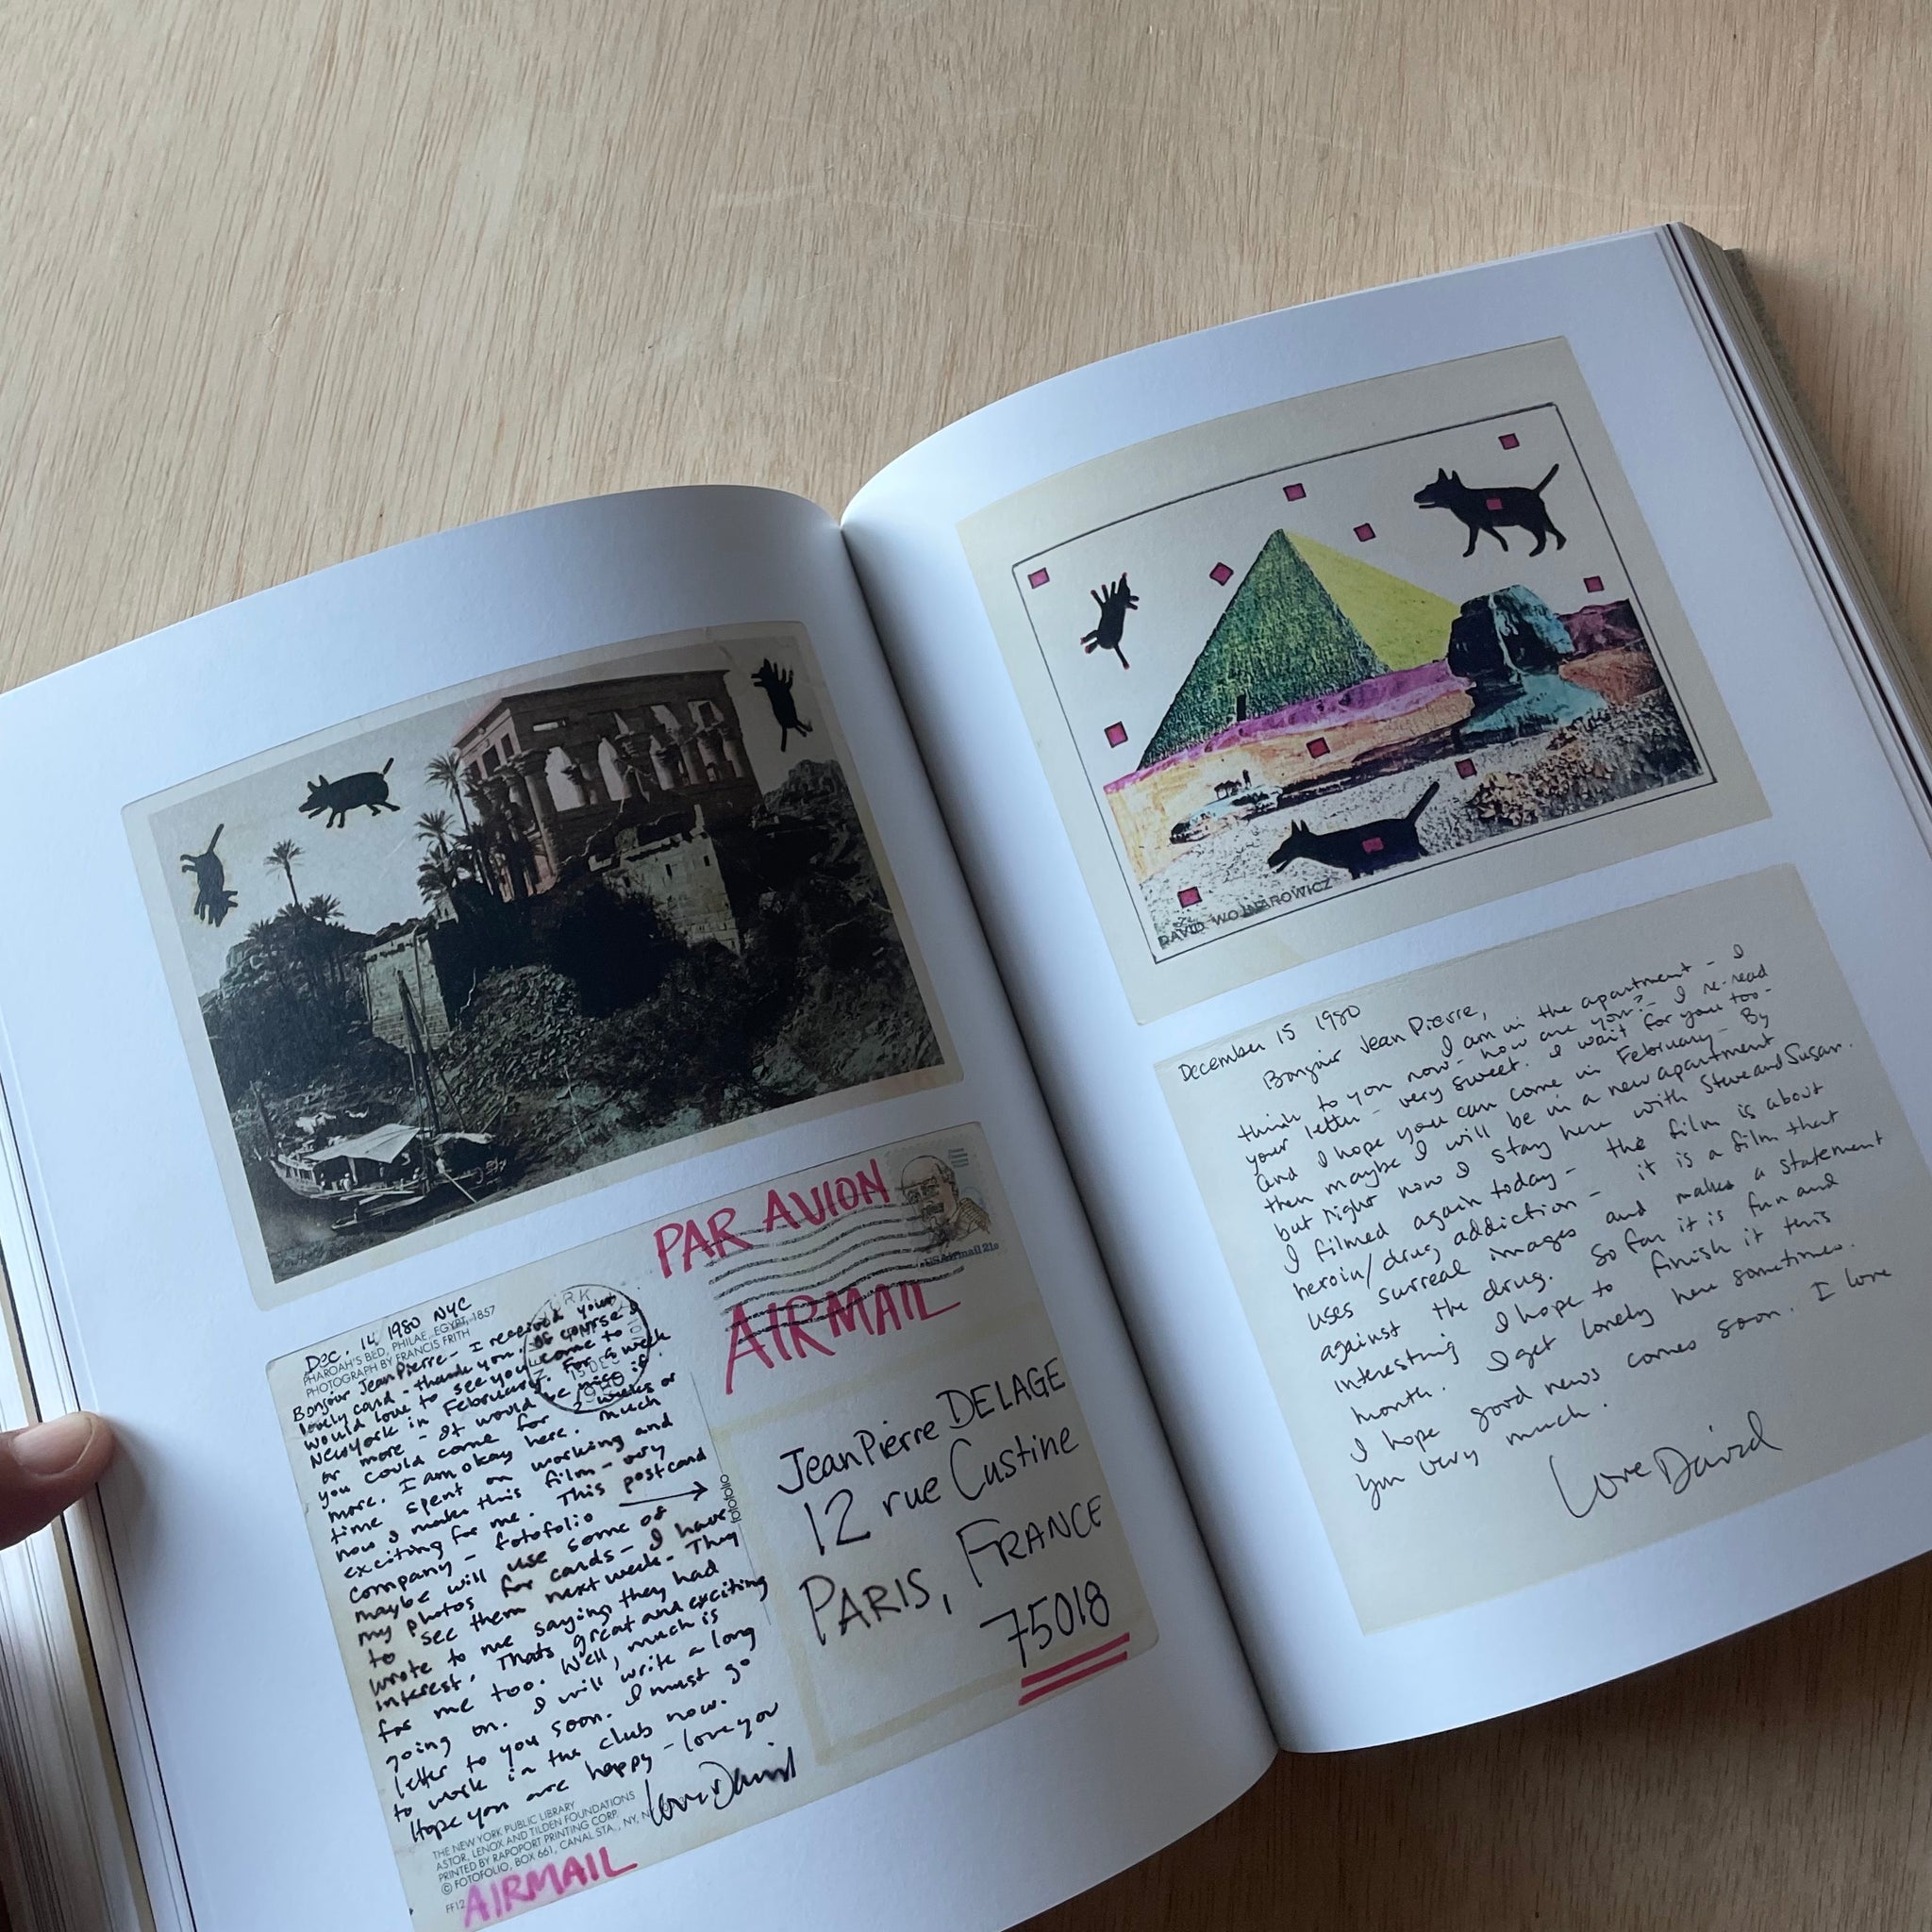 Dec. 14 1980 NYC
PHAROAH'S BED, PHILAE, EGYPT, 1857
PHOTOGRAPH BY FRANCIS FRITH
Bonjour Jean Pierre - I received your
lovely card - thank you. Of course I
would love to see you come to
New York in February. For a week
or more - It would be nice if
you could come for 2 weeks or
more. I am okay here. Much
time spent on working and
now I make this film - very
exciting for me. This postcard
company - fotofolio
maybe will use some of
my photos for cards - I have
to see them next week. They
wrote to me saying they had
interest. Thats great and exciting
for me too. Well, much is
going on. I will write a long
letter to you soon. I must go
to work in the club now.
Hope you are happy - love you
Love David
THE NEW YORK PUBLIC LIBRARY
ASTOR, LENOX AND TILDEN FOUNDATIONS
PRINTED BY RAPOPORT PRINTING CORP.
© FOTOFOLIO, BOX 661, CANAL STA., NY, N
FF12
AIRMAIL
fotofolio
PAR AVION
AIRMAIL
US Airmail 21c
15 DEC
1980
Jean Pierre DELAGE
12 rue Custine
PARIS, FRANCE
75018
DAVID WOJNAROWICZ
December 15 1980
Bonjour Jean Pierre,
I am in the apartment - I
think to you now - how are you? - I re-read
your letter - very sweet. I wait for you too -
and I hope you can come in February - By
then maybe I will be in a new apartment
but right now I stay here with Steve and Susan.
I filmed again today - the film is about
heroin/drug addiction - it is a film that
uses surreal images and makes a statement
against the drug. So far it is fun and
interesting I hope to finish it this
month. I get lonely here sometimes.
I hope good news comes soon. I love
you very much.
Love David